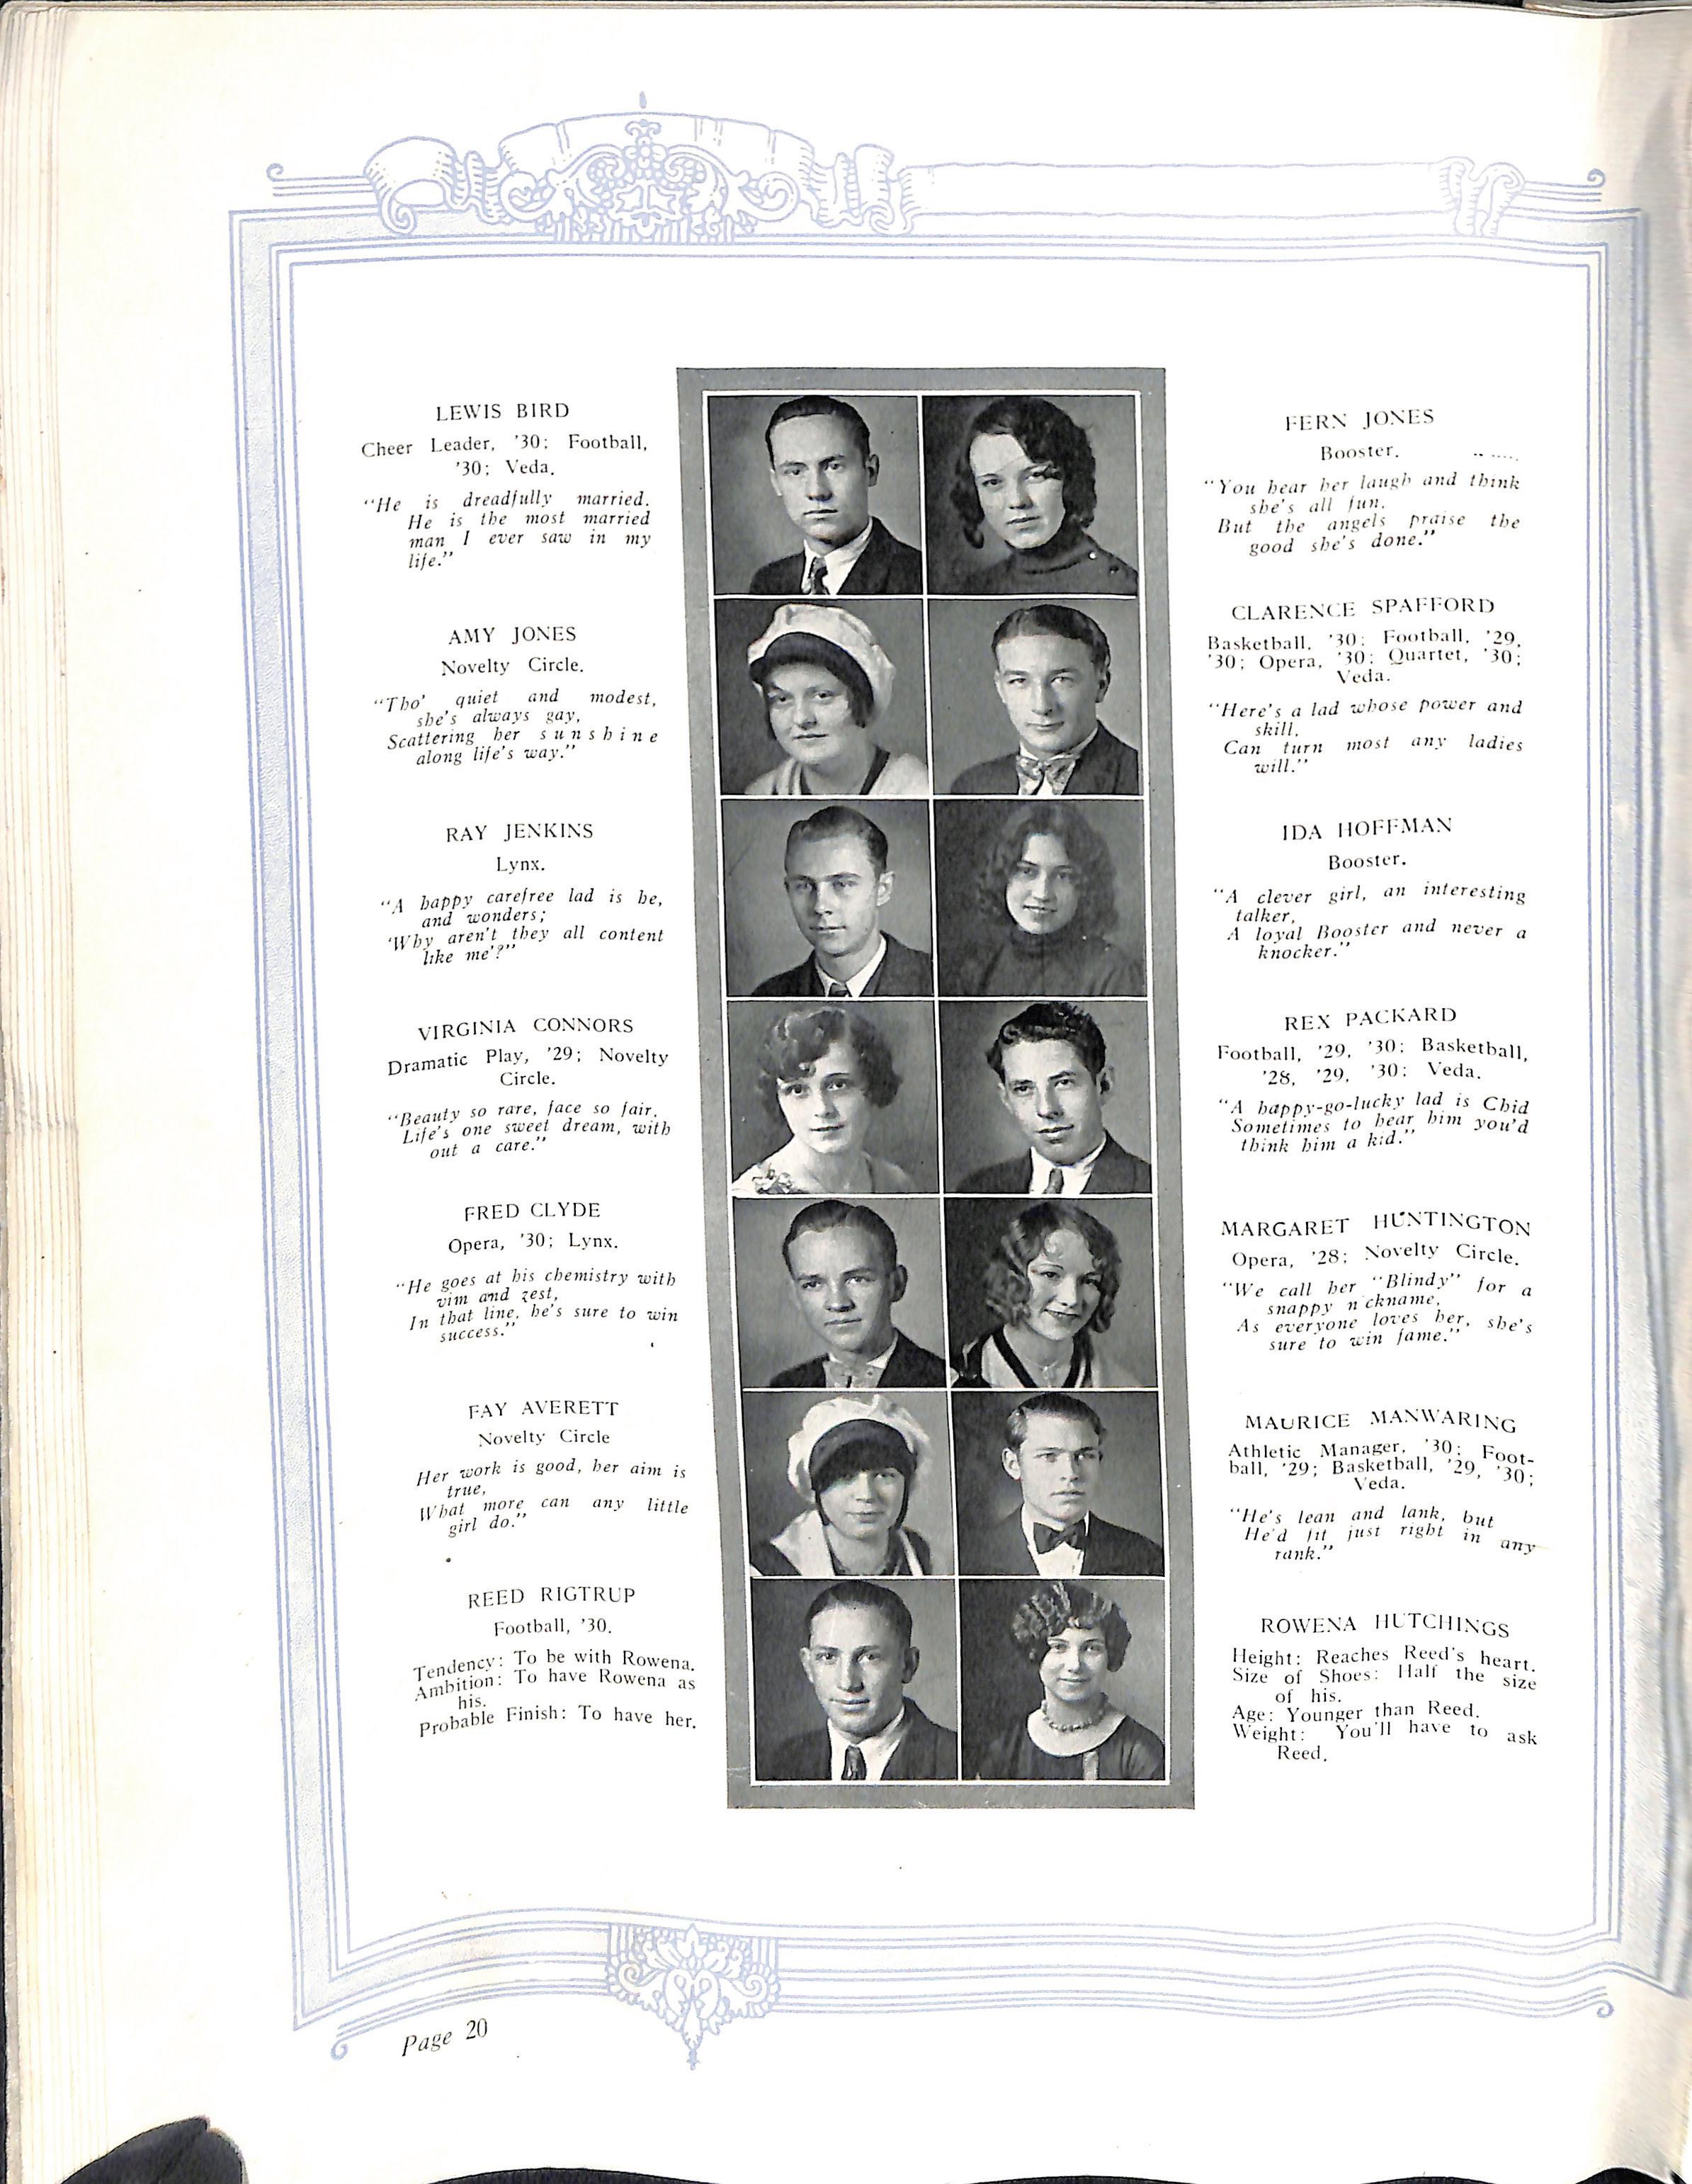 LEWIS BIRD
Cheer Leader, '30; Football,
'30; Veda.
"He is dreadfully married.
He is the most married
man I ever saw in my
life."
AMY JONES
Novelty Circle.
"Tho' quiet and modest,
she's always gay,
Scattering her sunshine
along life's way."
RAY JENKINS
Lynx.
"A happy carefree lad is he,
and wonders;
'Why aren't they all content
like me'?"
VIRGINIA CONNORS
Dramatic Play, '29; Novelty
Circle.
"Beauty so rare, face so fair,
Life's one sweet dream, with
out a care."
FRED CLYDE
Opera, '30; Lynx.
"He goes at his chemistry with
vim and zest,
In that line, he's sure to win
success."
FAY AVERETT
Novelty Circle
Her work is good, her aim is
true,
What more can any little
girl do."
REED RIGTRUP
Football, '30.
Tendency: To be with Rowena.
Ambition: To have Rowena as
his.
Probable Finish: To have her.
FERN JONES
Booster.
"You hear her laugh and think
she's all fun.
But the angels praise the
good she's done."
CLARENCE SPAFFORD
Basketball, '30; Football, '29,
'30; Opera, '30; Quartet, '30;
Veda.
"Here's a lad whose power and
skill,
Can turn most any ladies
will."
IDA HOFFMAN
Booster.
"A clever girl, an interesting
talker,
A loyal Booster and never a
knocker."
REX PACKARD
Football, '29, '30; Basketball,
'28, '29, '30; Veda.
"A happy-go-lucky lad is Chid
Sometimes to hear him you'd
think him a kid."
MARGARET HUNTINGTON
Opera, '28; Novelty Circle.
"We call her "Blindy" for a
snappy n ckname,
As everyone loves her, she's
sure to win fame."
MAURICE MANWARING
Athletic Manager, '30; Foot-
ball, '29; Basketball, '29, '30;
Veda.
"He's lean and lank, but
He'd fit just right in any
rank."
ROWENA HUTCHINGS
Height: Reaches Reed's heart.
Size of Shoes: Half the size
of his.
Age: Younger than Reed.
Weight: You'll have to ask
Reed.
Page 20